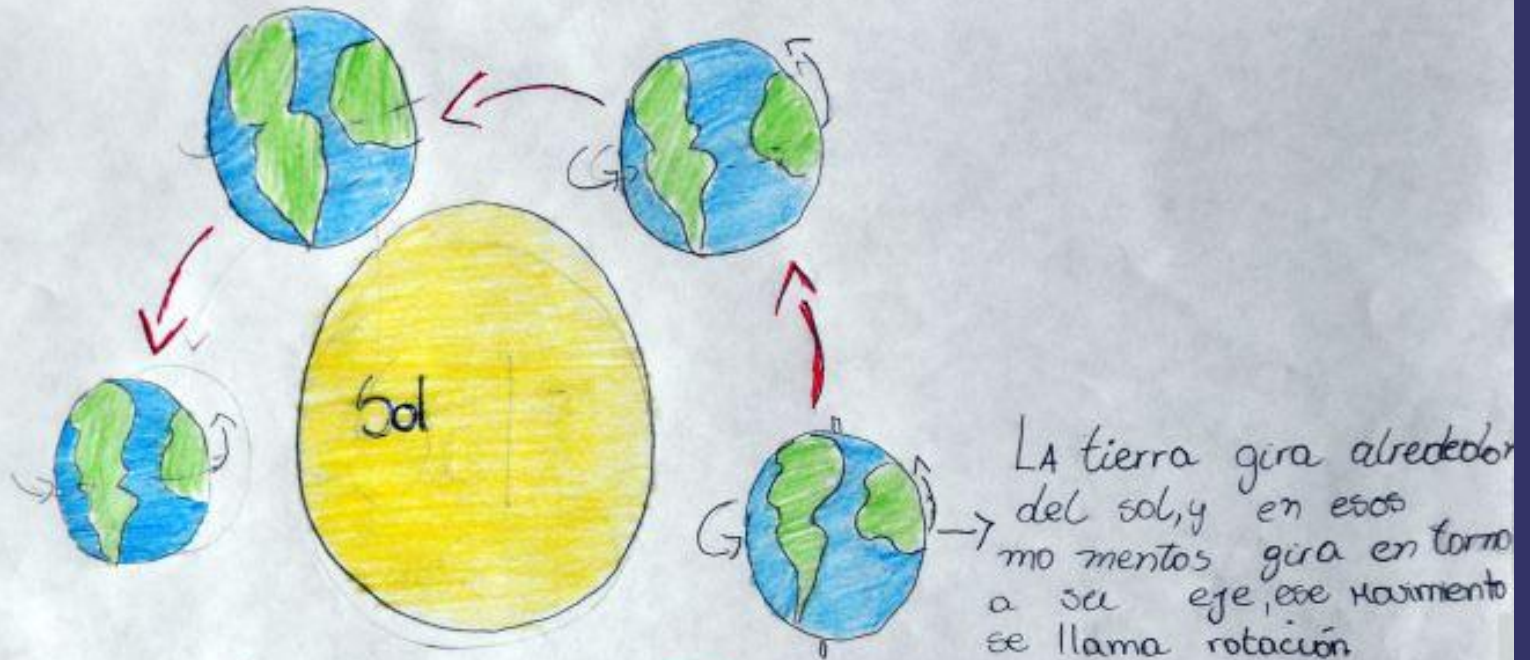 Sol
LA tierra gira alrededor
del sol, y en esos
mo mentos gira en torno
a su eje, ese Movimiento
se llama rotación